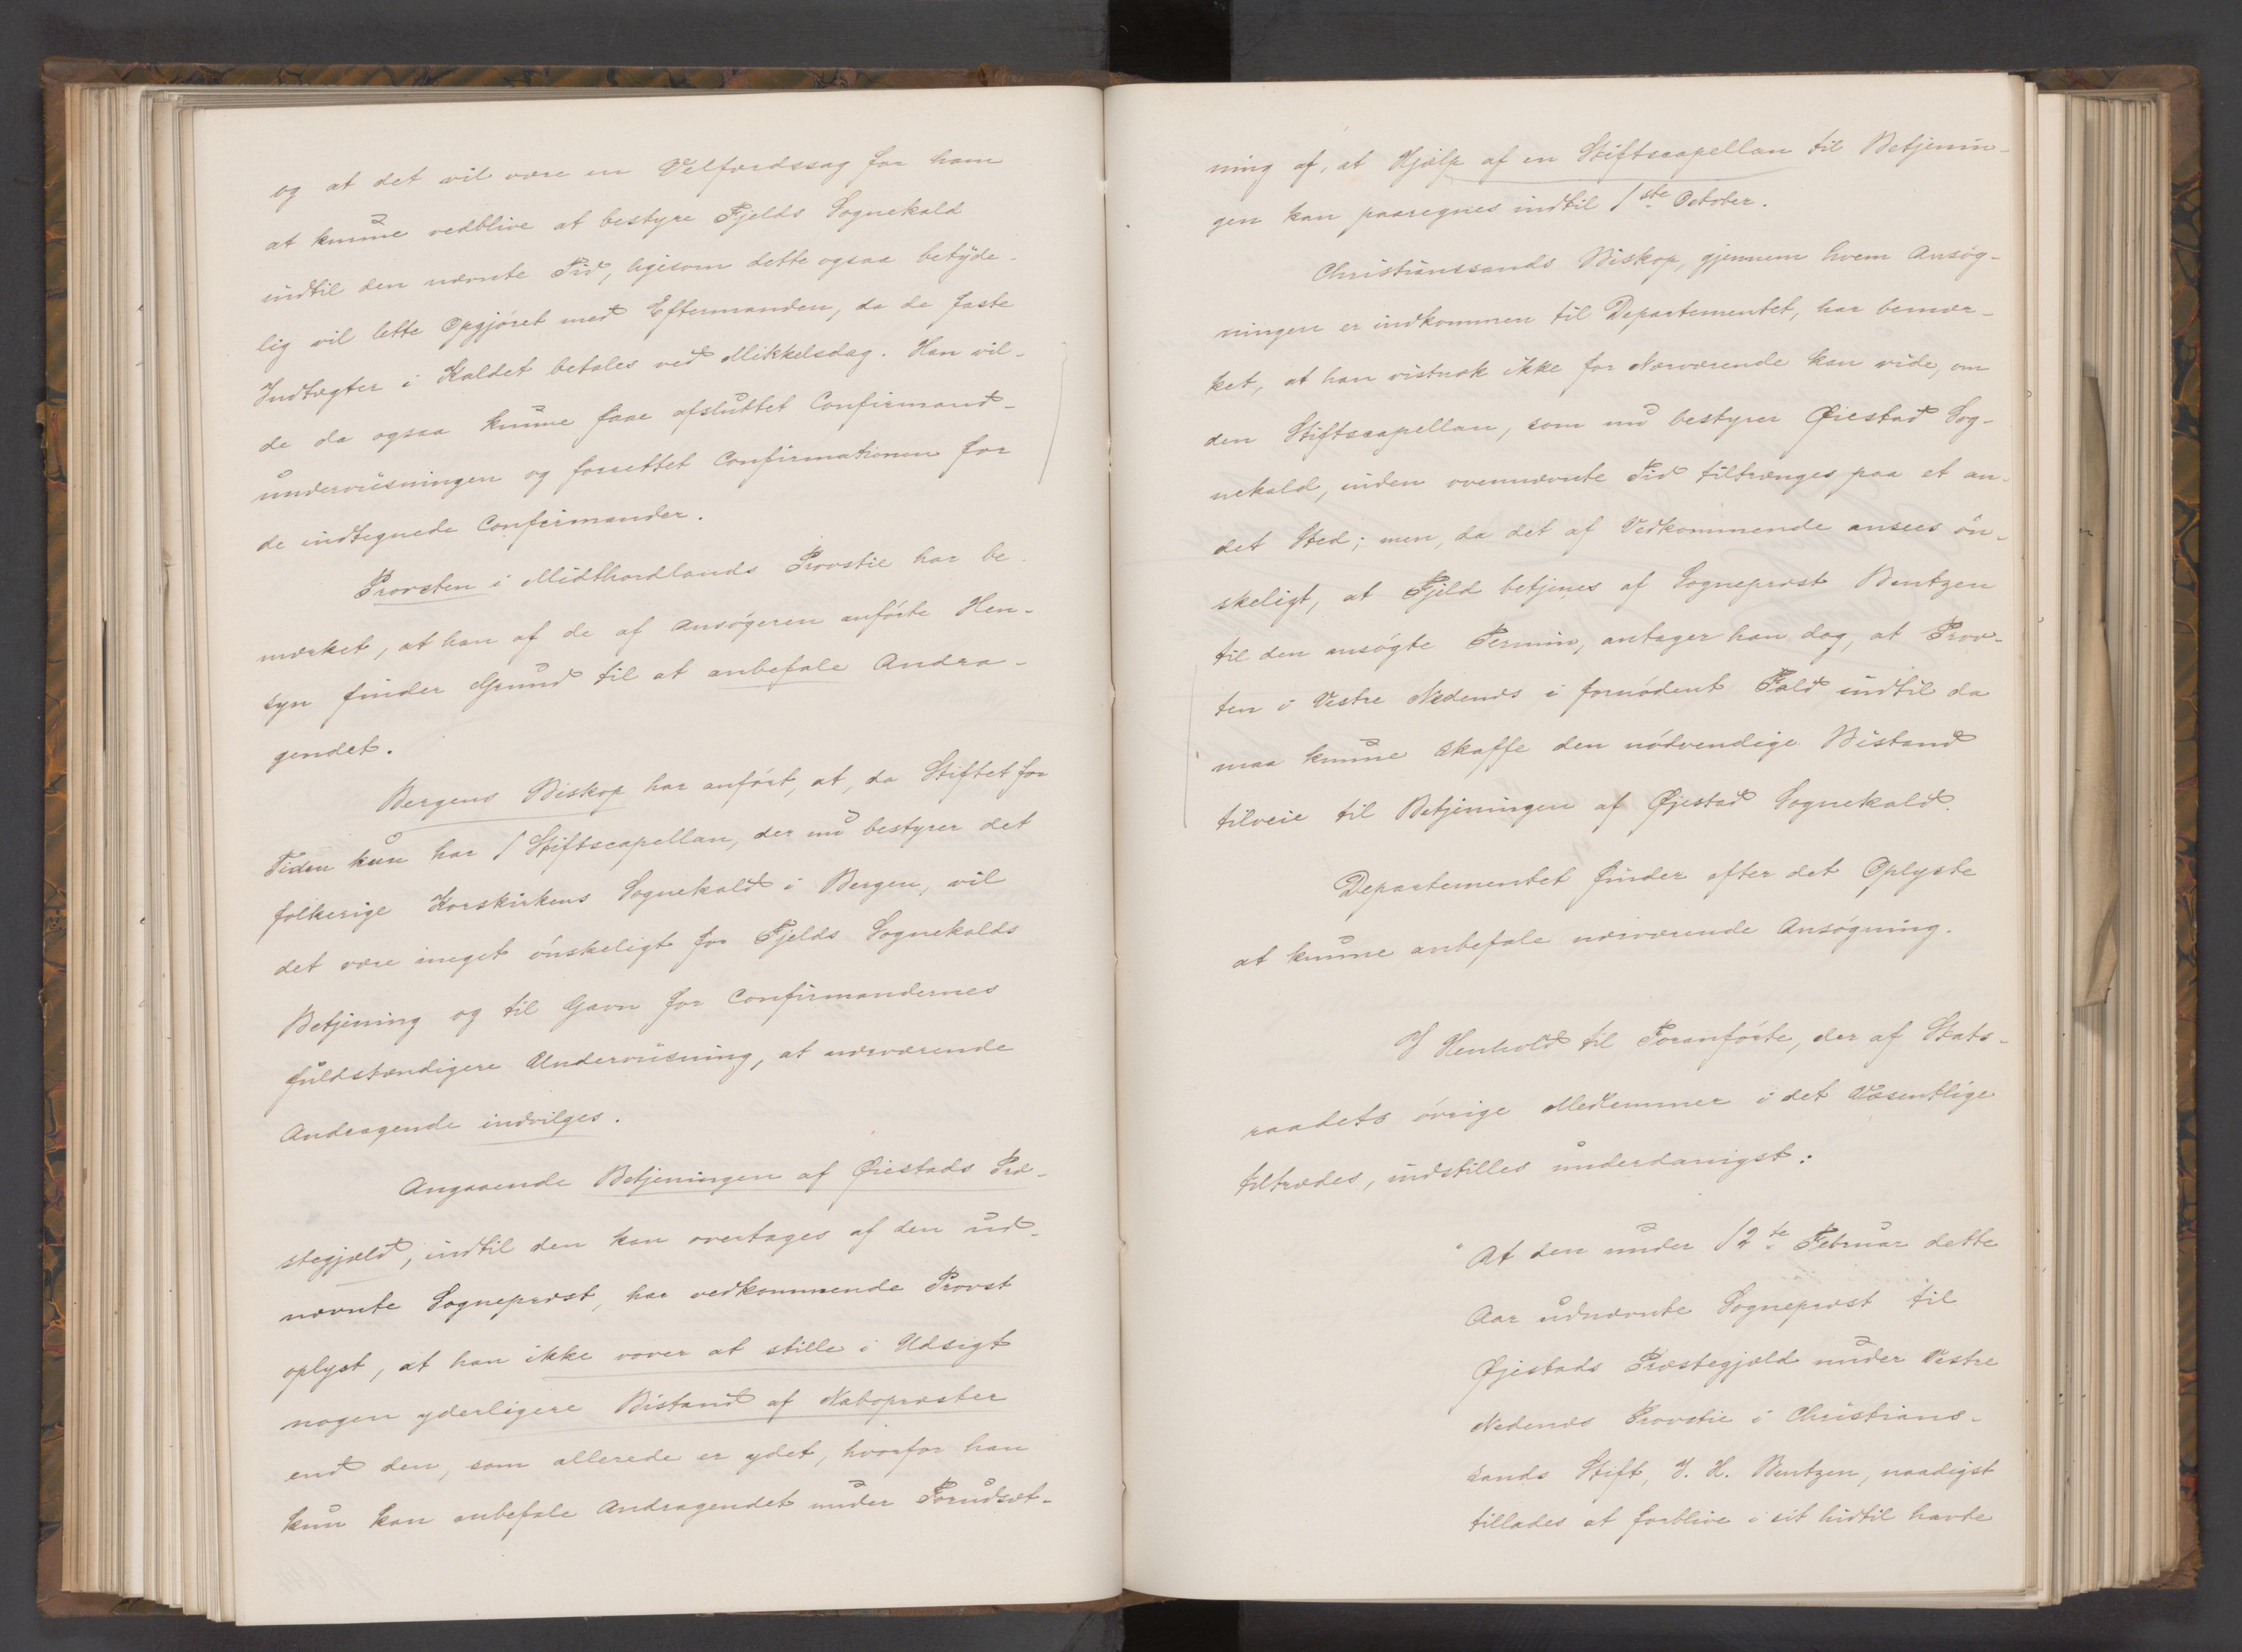 og at det vil være en Velfærdssag for ham
at kunne vedblive at bestyre Fjelds Sognekald
indtil den nævnte Tid, ligesom dette ogsaa betyde-
lig vil lette Opgjöret med Eftermanden, da de faste
Indtægter i Kaldet betales ved Mikkelsdag. Han vil-
de da ogsaa kunne faae afsluttet Confirmand-
underviisningen og forrettet Confirmationen for
de indtegnede Confirmander.
Provsten i Midthordlands Provstie har be-
mærket, at han af de af Ansögeren anförte Hen-
syn finder Grund til at anbefale Andra-
gendet.
Bergens Biskop har anfört, at, da Stiftet for
Tiden kun har 1 Stiftscapellan, der nu bestyrer det
folkerige Korskirkens Sognekald i Bergen, vil
det være meget önskeligt for Fjelds Sognekalds
Betjening og til Gavn for Confirmandernes
fuldstændigere Underviisning, at nærværende
Andragende indvilges.
Angaaende Betjeningen af Øiestads Præ-
stegjæld, indtil den kan overtages af den ud-
nævnte Sognepræst, har vedkommende Provst
oplyst, at han ikke vover at stille i Udsigt
nogen yderligere Bistand af Nabopræster
end den, som allerede er ydet, hvorfor han
kun kan anbefale Andragendet under Forudsæt-
ning af, at Hjælp af en Stiftscapellan til Betjenin-
gen kan paaregnes indtil 1ste October.
Christianssands Biskop, gjennem hvem Ansög-
ningen er indkommen til Departementet, har bemær-
ket, at han vistnok ikke for Nærværende kan vide, om
den Stiftscapellan, som nu bestyrer Øiestad Sog-
nekald, inden ovennævnte Tid tiltrænges paa et an-
det Sted; men, da det af Vedkommende ansees ön-
skeligt, at Fjeld betjenes af Sognepræst Bentzen
til den ansögte Termin, antager han dog, at Prov-
ten i Vestre Nedenæs i fornödent Fald indtil da
maa kunne skaffe den nödvendige Bistand
tilveie til Betjeningen af Øjestad Sognekald.
Departementet finder efter det Oplyste
at kunne anbefale nærværende Ansögning.
I Henhold til Foranförte, der af Stats-
raadets övrige Medlemmer i det Væsentlige
tiltrædes, indstilles underdanigst:
"At den under 12te Februar dette
Aar udnævnte Sognepræst til
Øjestads Præstegjæld under Vestre
Nedenæs Provstie i Christians-
sands Stift, J. H. Bentzen, naadigst
tillades at forblive i sit hidtil havte